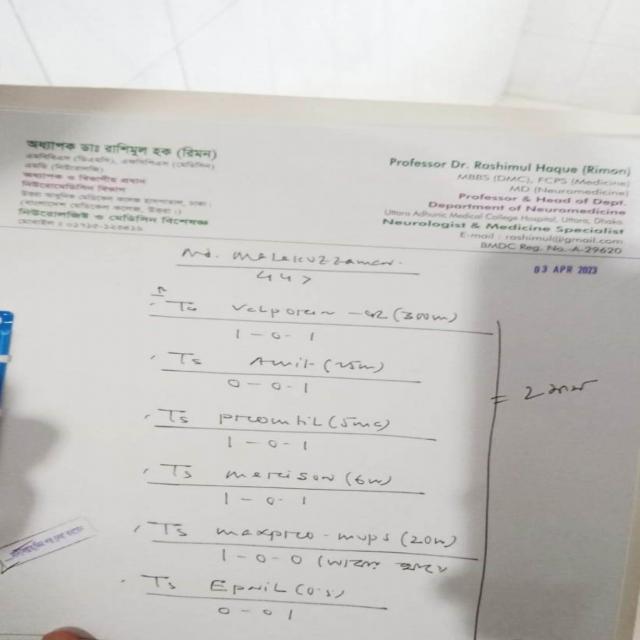 অধ্যাপক ডাঃ রাশিমুল হক (রিমন)
এমবিবিএস (ডিএমসি), এফসিপিএস (মেডিসিন)
এমডি (নিউরোমেডিসিন)
অধ্যাপক ও বিভাগীয় প্রধান
নিউরোমেডিসিন বিভাগ
উত্তরা আধুনিক মেডিকেল কলেজ হাসপাতাল, ঢাকা।
নিউরোলজিষ্ট ও মেডিসিন বিশেষজ্ঞ
Professor Dr. Rashimul Haque (Rimon)
MBBS (DMC), FCPS (Medicine)
MD (Neuromedicine)
Professor & Head of Dept.
Department of Neuromedicine
Uttara Adhunic Medical College Hospital, Uttara, Dhaka.
Neurologist & Medicine Specialist
E-mail : rashimul@gmail.com
BMDC Reg. No. A-29620
03 APR 2023
Md. Malekuzzaman.
44y
Tb Valporin - (300m)
1 - 0 - 1
Tb Amit (25m)
0 - 0 - 1
Tb (5mg)
1 - 0 - 1
Tb (6m)
1 - 0 - 1
Tb maxpro - mups (20m)
1 - 0 - 0
Tb (0.5)
0 - 0 1
= 2 মাস